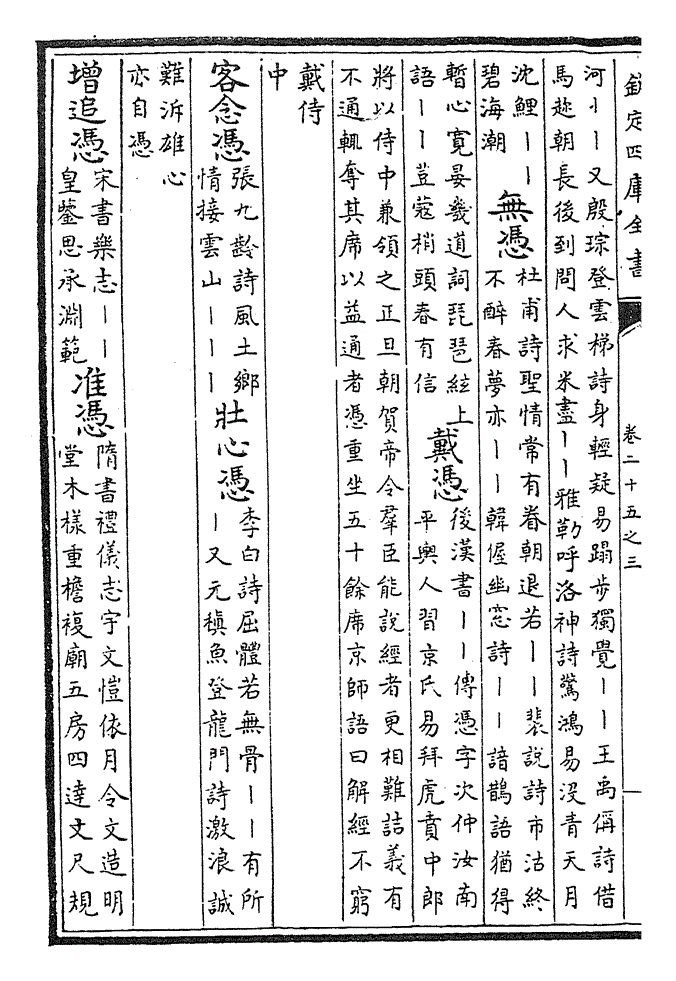 欽定四庫全書
卷二十五之三
河丨丨又殷琮登雲梯詩身輕疑易蹋步獨覺丨丨王禹偁詩借
馬趂朝長後到問人求米盡丨丨雅勒呼洛神詩驚鴻易没青天月
沈鯉丨丨
碧海潮
無憑
杜甫詩聖情常有眷朝退若丨丨裴說詩市沽終
不醉春夢亦丨丨韓偓幽窓詩丨丨諳鵲語猶得
暫心寛晏幾道詞琵琶絃上
語丨丨荳蔻梢頭春有信
戴憑
後漢書丨丨傳憑字次仲汝南
平輿人習京氏易拜虎賁中郎
將以侍中兼領之正旦朝賀帝令羣臣能說經者更相難詰義有
不通輒奪其席以益通者憑重坐五十餘席京師語曰解經不窮
戴侍
中
客念憑
張九齡詩風土鄉
情接雲山丨丨丨
壯心憑
李白詩屈體若無骨丨丨有所
丨又元稹魚登龍門詩激浪誠
難泝雄心
亦自憑
增追憑
宋書樂志丨丨
皇鑒思承淵範
准憑
隋書禮儀志宇文愷依月令文造明
堂木様重檐複廟五房四達丈尺規